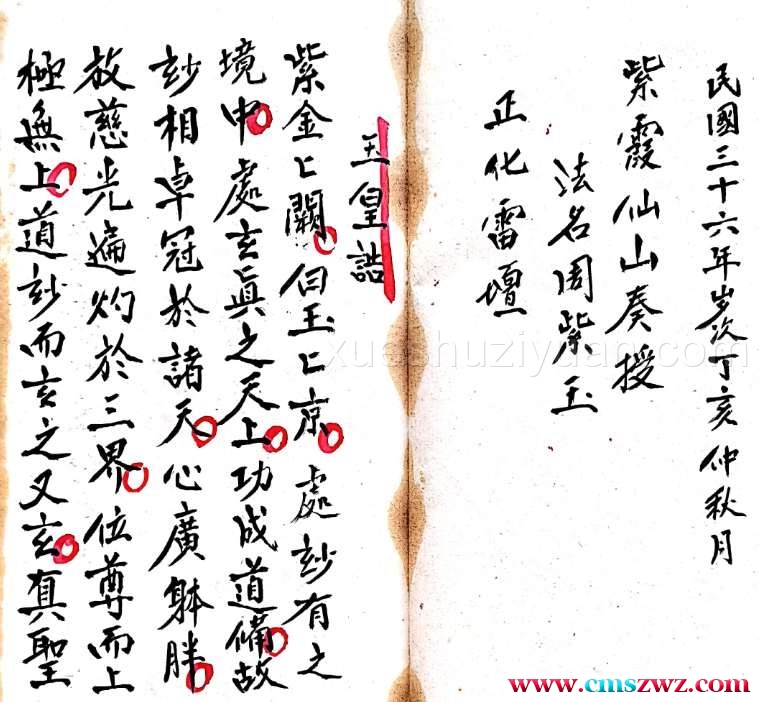 民國三十六年岁次丁亥仲秋月
紫霞仙山奏授
法名周紫玉
正化雷壇
玉皇誥
紫金匕闕白玉匕京處玅有之
境中處玄眞之天上功成道備故
玅相卓冠於諸天心廣躰胖
放慈光遍灼於三界位尊而上
極無上道玅而玄之又玄真聖
xueshuziyuan.com
www.cmszwz.com